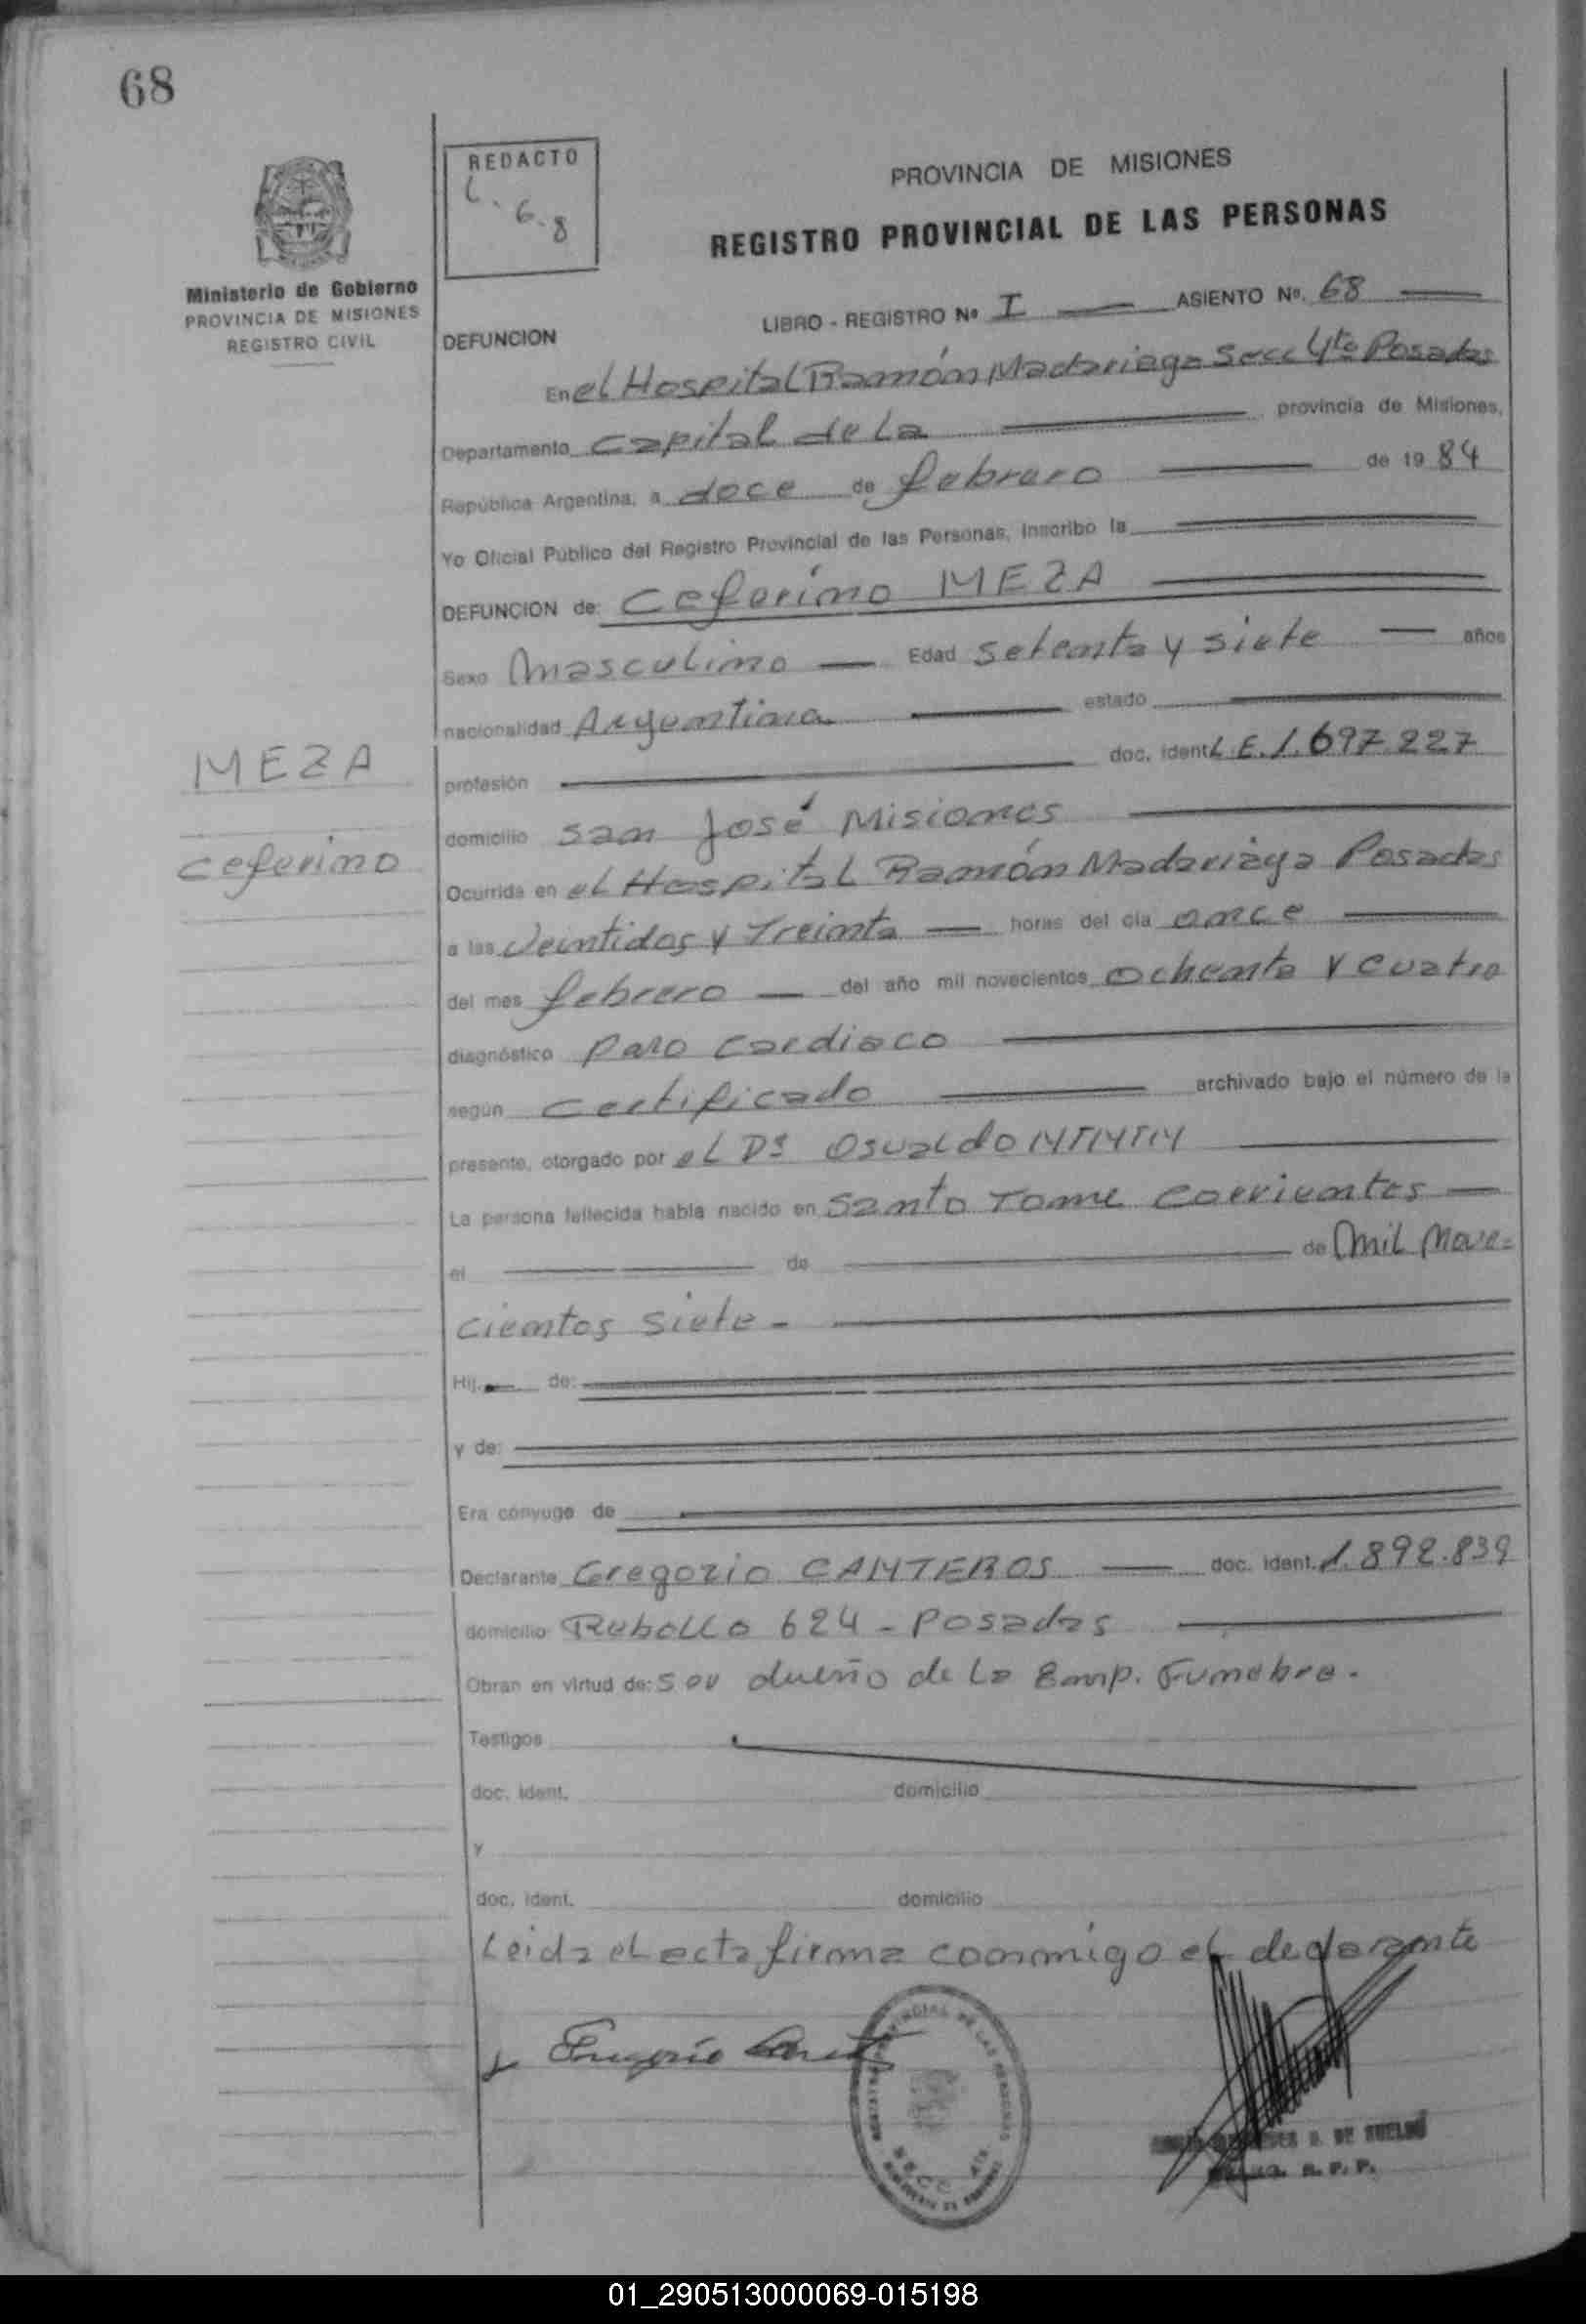 68
REDACTO
6.8
Ministerio de Gobierno
PROVINCIA DE MISIONES
REGISTRO CIVIL
PROVINCIA DE MISIONES
REGISTRO PROVINCIAL DE LAS PERSONAS
LIBRO - REGISTRO Nº I ASIENTO Nº. 68
DEFUNCION
En el Hospital Ramón Madariaga Secc 4ta Posadas
Departamento Capital de la provincia de Misiones,
República Argentina, a doce de febrero de 1984
Yo Oficial Público del Registro Provincial de las Personas, inscribo la
DEFUNCION de: Ceferino MEZA
Sexo Masculino Edad setenta y siete años
nacionalidad Argentina estado
profesión doc. ident. L.E. 1.697.227
MEZA
Ceferino
domicilio San José Misiones
Ocurrida en el Hospital Ramón Madariaga Posadas
a las Veintidos y Treinta horas del día once
del mes febrero del año mil novecientos ochenta y cuatro
diagnóstico Paro Cardiaco
según Certificado archivado bajo el número de la
presente, otorgado por el Dr Osvaldo
La persona fallecida había nacido en Santo Tome Corrientes
el de de mil nove=
cientos siete -
Hij de:
y de:
Era cónyuge de
Declarante Gregorio CANTEROS doc. ident. 1.892.839
domicilio Rebollo 624 - Posadas
Obran en virtud de: Ser dueño de la Emp. Funebre.
Testigos
doc. ident. domicilio
y
doc. ident. domicilio
Leida el acta firma conmigo el declarante
DE LAS PERSONAS
R. P. P.
01_290513000069-015198